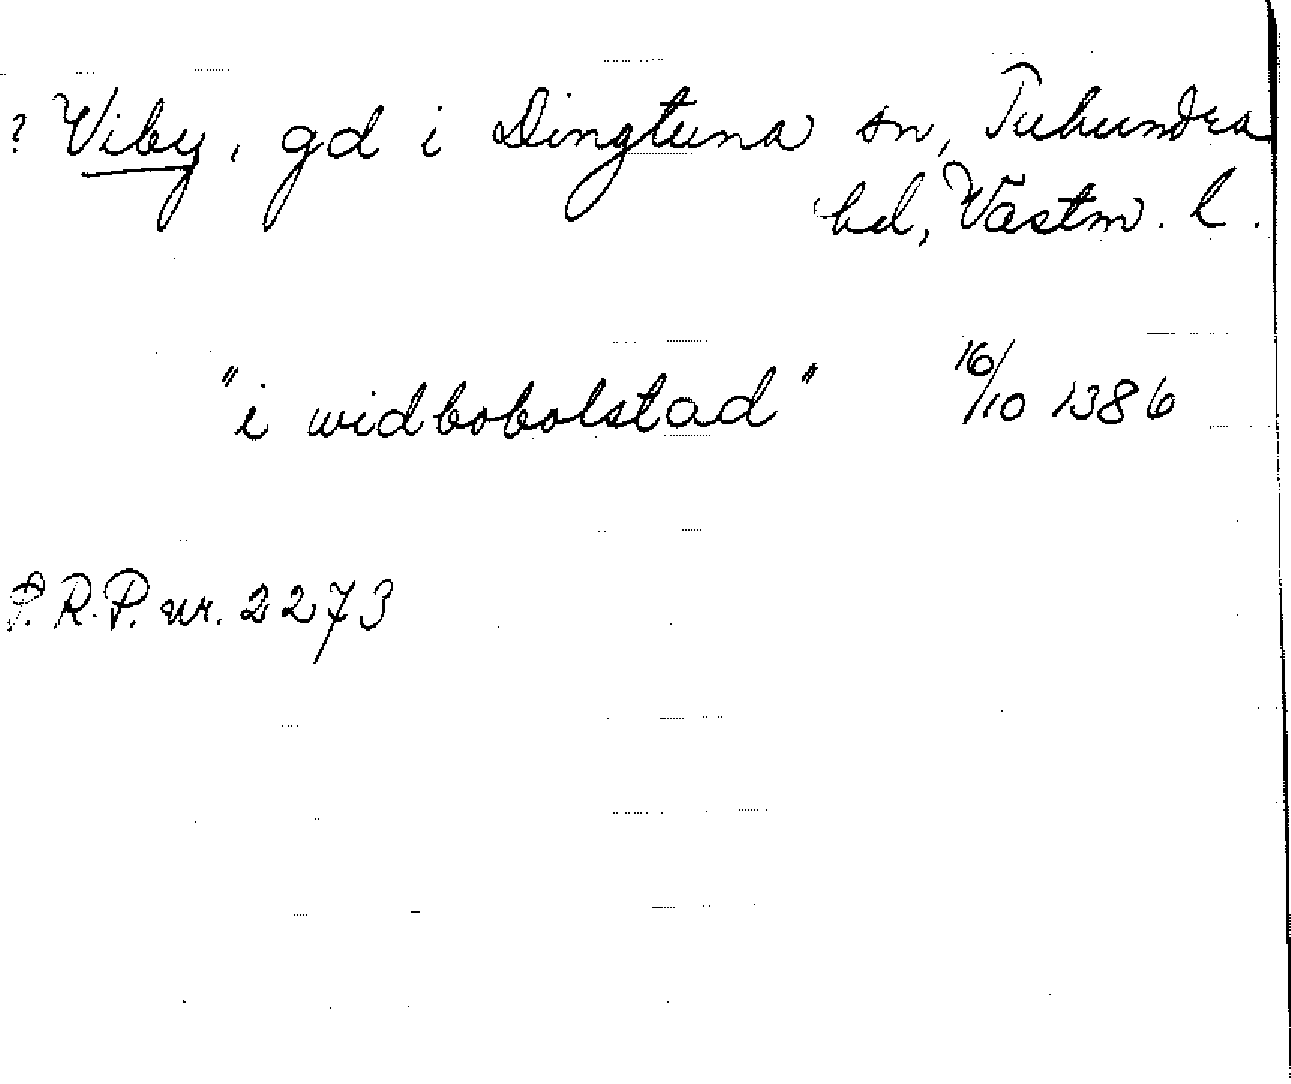 ? Viby, gd i Dingtuna sn, Tuhundra
hd, Västm. l.
"i widbobolstad" 16/10 1386
P.R.P. nr. 2273